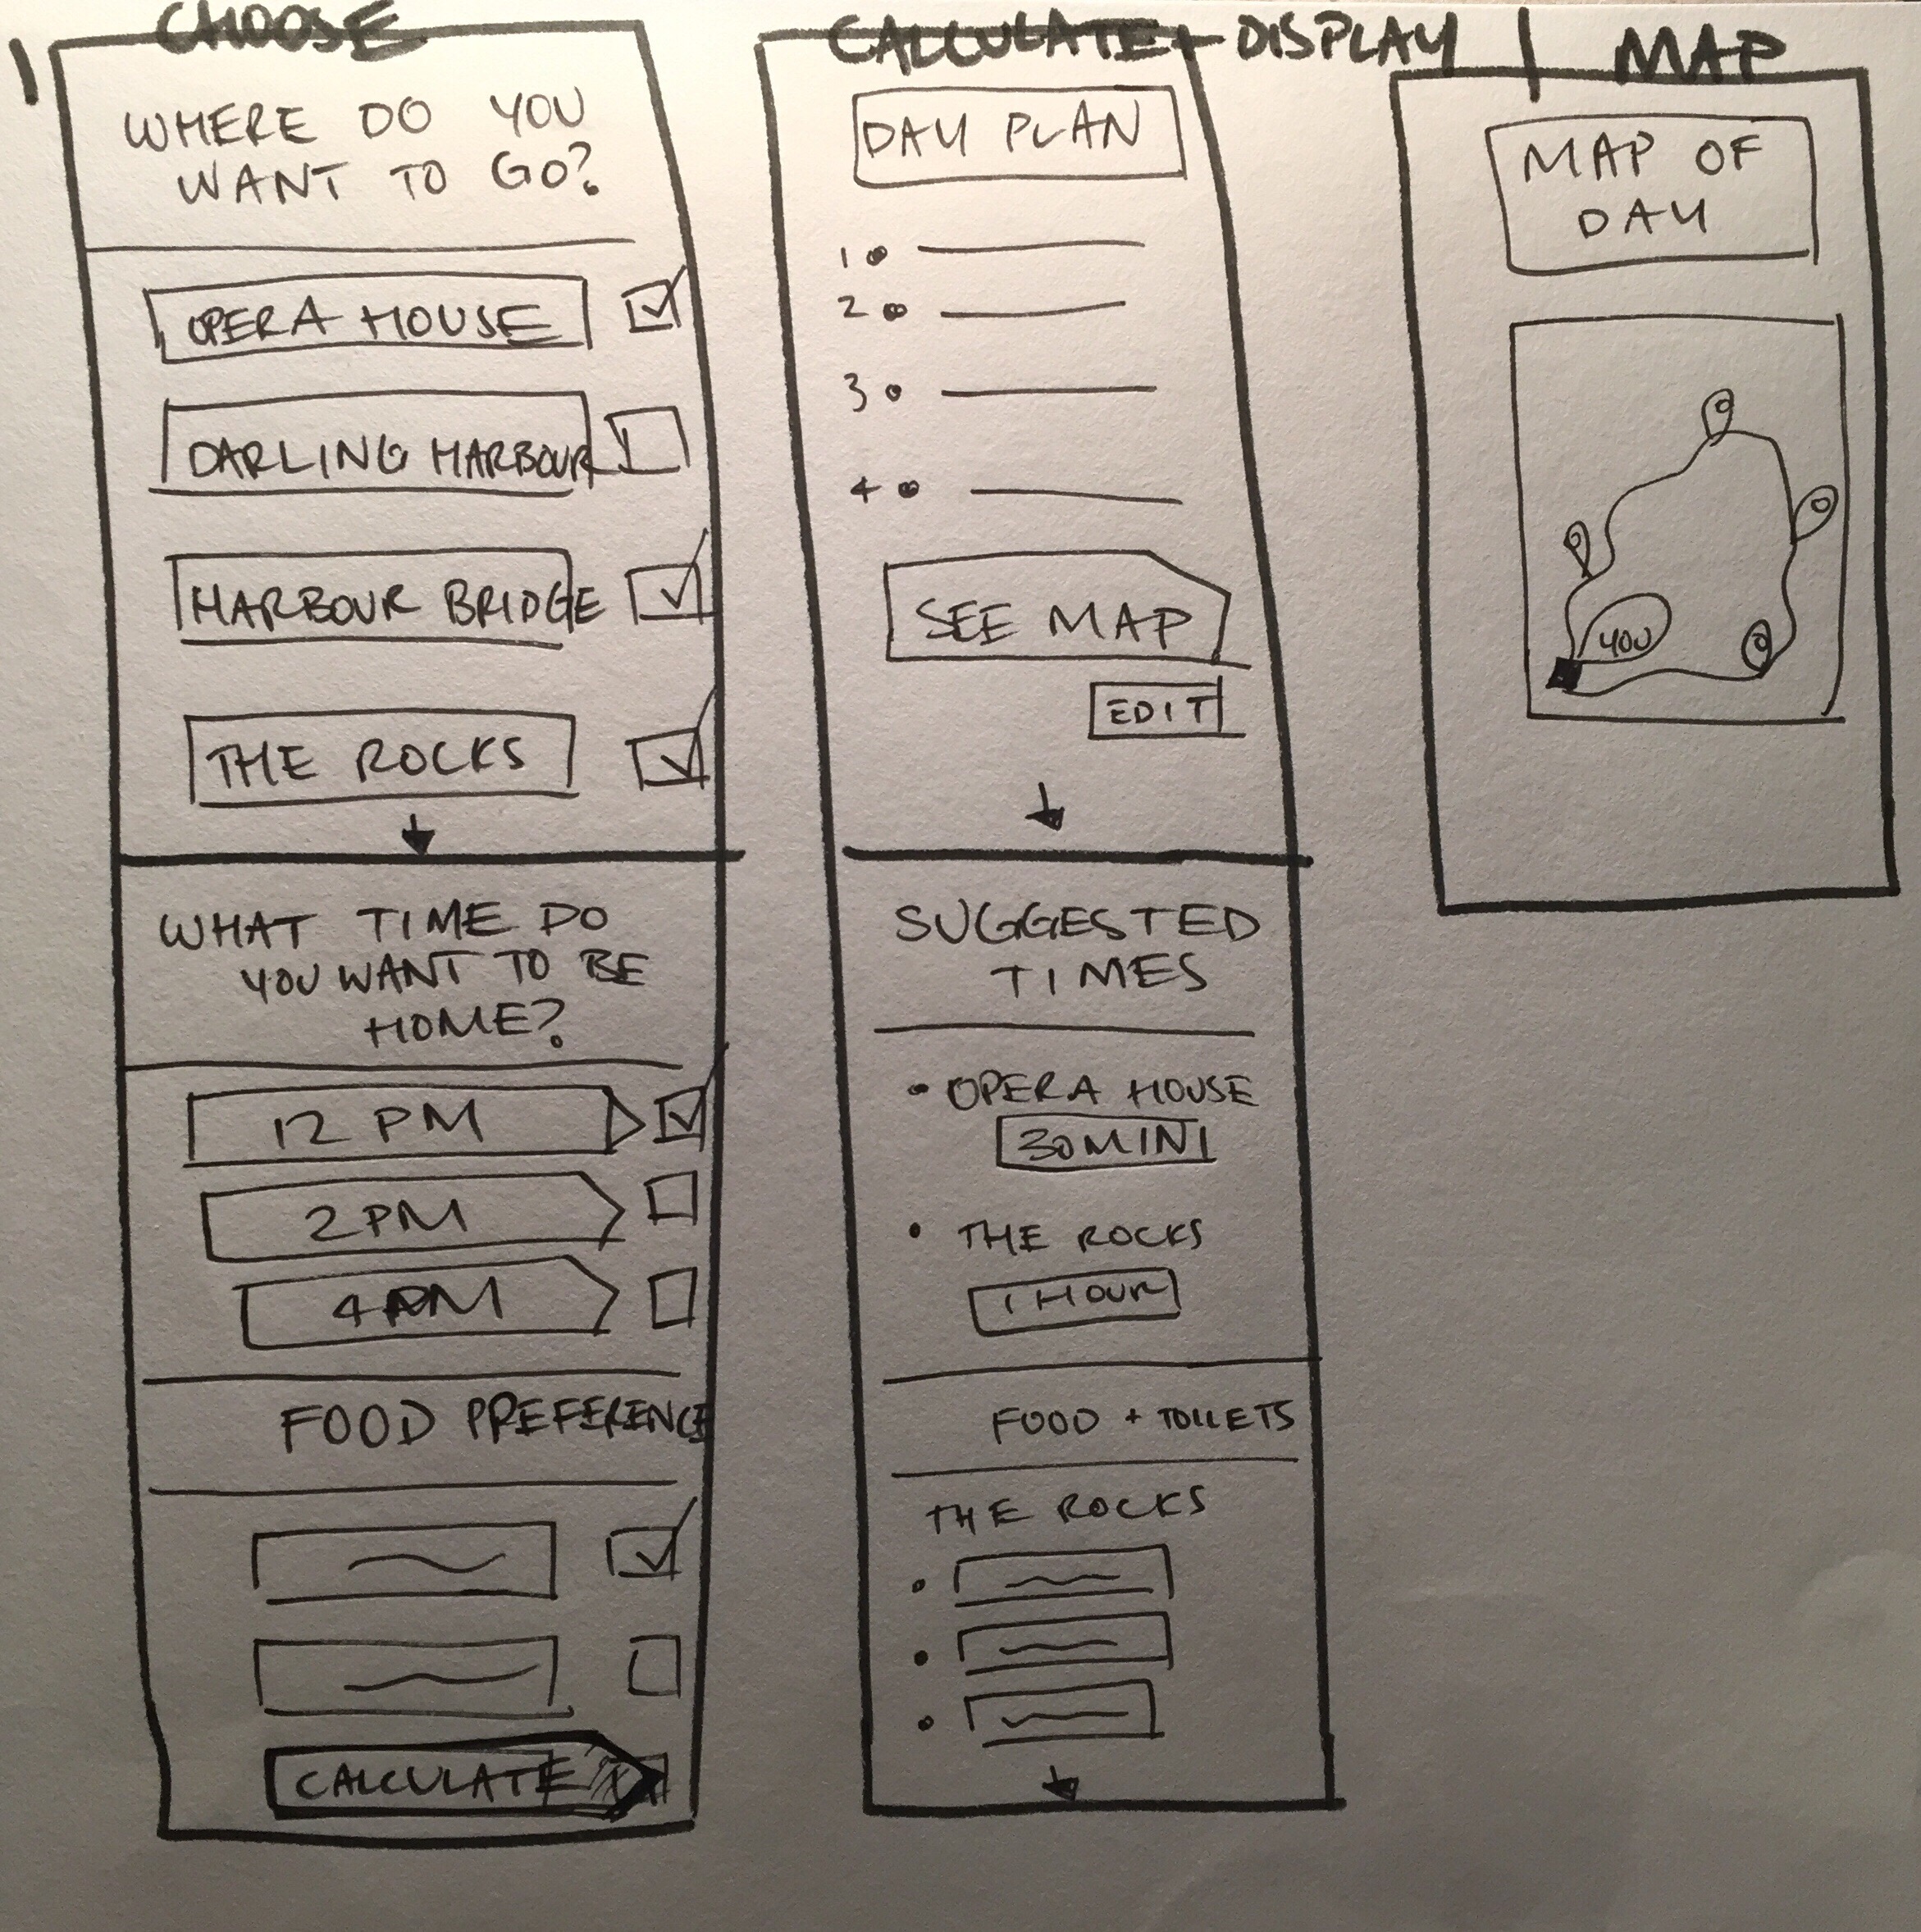 CHOOSE
WHERE DO YOU
WANT TO GO?
OPERA HOUSE
DARLING HARBOUR
HARBOUR BRIDGE
THE ROCKS
WHAT TIME DO
YOU WANT TO BE
HOME?
12 PM
2 PM
4 PM
FOOD PREFERENCE
CALCULATE
CALCULATE + DISPLAY
DAY PLAN
1
2
3
4
SEE MAP
EDIT
SUGGESTED
TIMES
• OPERA HOUSE
30 MINI
• THE ROCKS
1 HOUR
FOOD + TOILETS
THE ROCKS
MAP
MAP OF
DAY
YOU